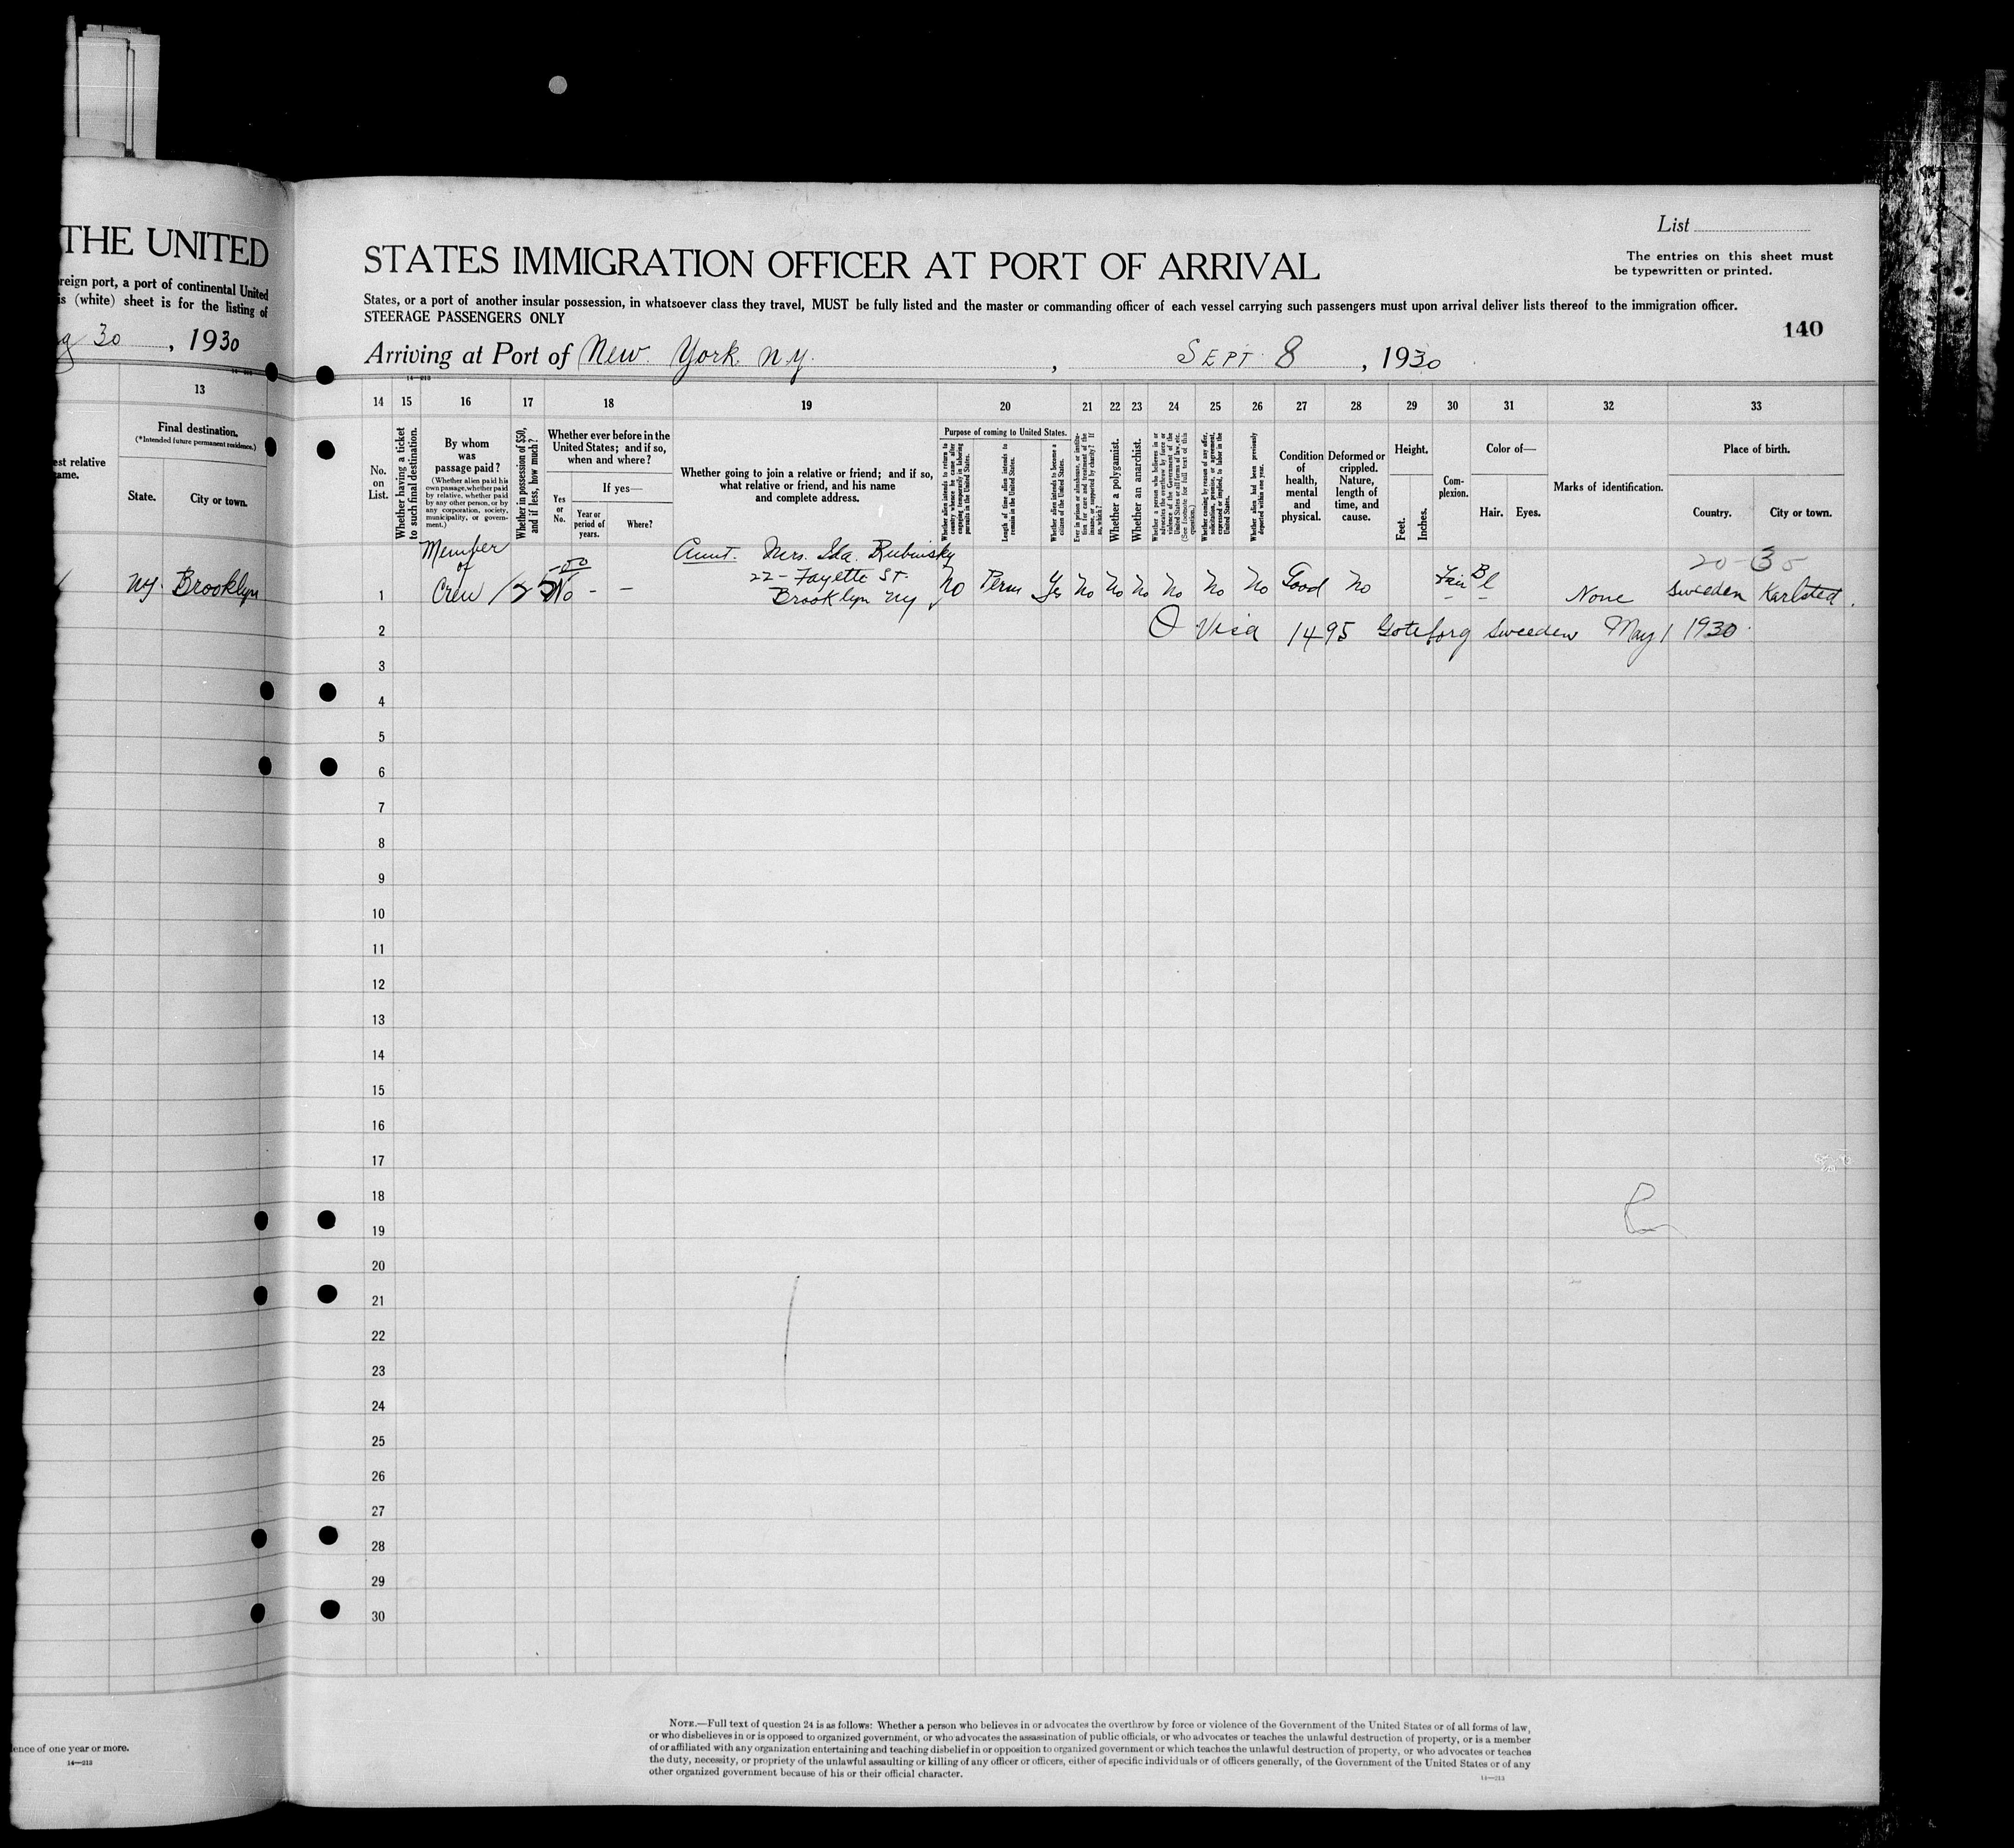 THE UNITED
reign port, a port of continental United
is (white) sheet is for the listing of
30, 1930
13
Final destination.
(*Intended future permanent residence.)
est relative
ame.
State.
City or town.
NY. Brooklyn
ence of one year or more.
14—213
List
The entries on this sheet must
be typewritten or printed.
STATES IMMIGRATION OFFICER AT PORT OF ARRIVAL
States, or a port of another insular possession, in whatsoever class they travel, MUST be fully listed and the master or commanding officer of each vessel carrying such passengers must upon arrival deliver lists thereof to the immigration officer.
STEERAGE PASSENGERS ONLY
140
Arriving at Port of New York N.Y. , SEPT 8 , 1930
14—213
14 15 16 17 18 19 20 21 22 23 24 25 26 27 28 29 30 31 32 33
No.
on
List.
Whether having a ticket
to such final destination.
By whom
was
passage paid?
(Whether alien paid his
own passage, whether paid
by relative, whether paid
by any other person, or by
any corporation, society,
municipality, or govern-
ment.)
Whether in possession of $50,
and if less, how much?
Whether ever before in the
United States; and if so,
when and where?
Yes
or
No.
If yes—
Year or
period of
years.
Where?
Whether going to join a relative or friend; and if so,
what relative or friend, and his name
and complete address.
Purpose of coming to United States.
Whether alien intends to return to
country whence he came after
engaging temporarily in laboring
pursuits in the United States.
Length of time alien intends to
remain in the United States.
Whether alien intends to become a
citizen of the United States.
Ever in prison or almshouse, or institu-
tion for care and treatment of the
insane, or supported by charity? If
so, which?
Whether a polygamist.
Whether an anarchist.
Whether a person who believes in or
advocates the overthrow by force or
violence of the Government of the
United States or all forms of law, etc.
(See footnote for full text of this
question.)
Whether coming by reason of any offer,
solicitation, promise, or agreement,
expressed or implied, to labor in the
United States.
Whether alien had been previously
deported within one year.
Condition
of
health,
mental
and
physical.
Deformed or
crippled.
Nature,
length of
time, and
cause.
Height.
Feet.
Inches.
Com-
plexion.
Color of—
Hair.
Eyes.
Marks of identification.
Place of birth.
Country.
City or town.
20-35
Member
of
Crew
125.00
No - -
Aunt. Mrs. Ida. Rubinsky
22 - Fayette St.
Brooklyn NY
1 No Perm Yes No No No No No No Good No Fair Bl None Sweeden Karlsted.
2 Visa 1495 Goteforg Sweeden May 1 1930
3
4
5
6
7
8
9
10
11
12
13
14
15
16
17
18
19
20
21
22
23
24
25
26
27
28
29
30
NOTE.—Full text of question 24 is as follows: Whether a person who believes in or advocates the overthrow by force or violence of the Government of the United States or of all forms of law,
or who disbelieves in or is opposed to organized government, or who advocates the assassination of public officials, or who advocates or teaches the unlawful destruction of property, or is a member
of or affiliated with any organization entertaining and teaching disbelief in or opposition to organized government or which teaches the unlawful destruction of property, or who advocates or teaches
the duty, necessity, or propriety of the unlawful assaulting or killing of any officer or officers, either of specific individuals or of officers generally, of the Government of the United States or of any
other organized government because of his or their official character.
14—213